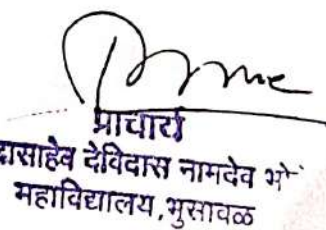 प्राचार्य
दासाहेब देविदास नामदेव भो
महाविद्यालय, भुसावळ